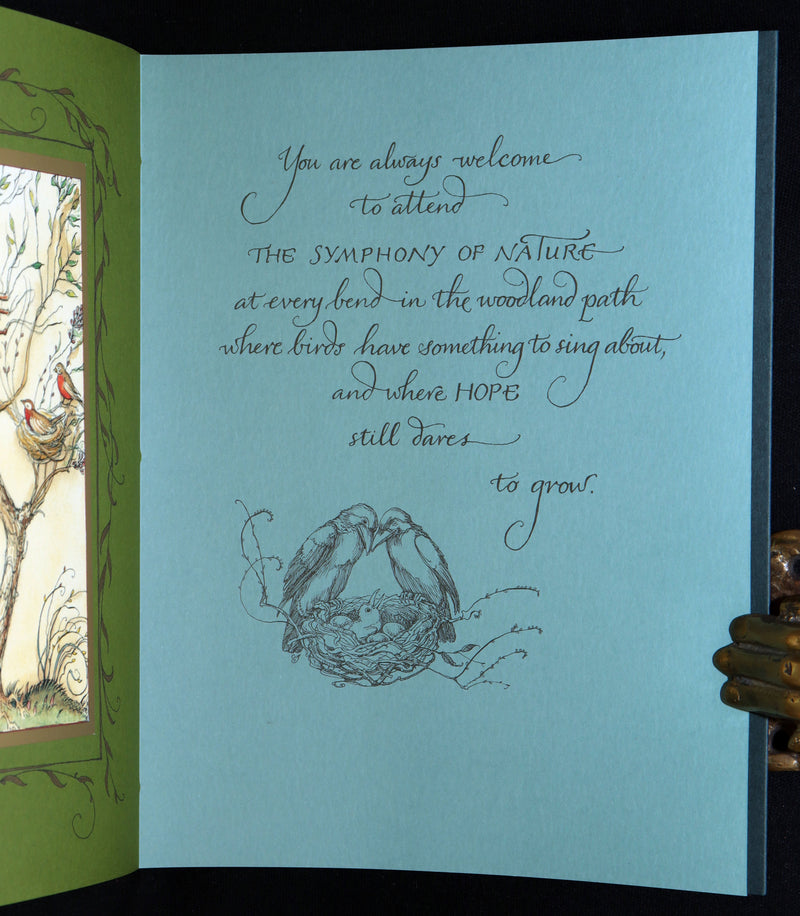 You are always welcome
to attend
THE SYMPHONY OF NATURE
at every bend in the woodland path
where birds have something to sing about,
and where HOPE
still dares
to grow.